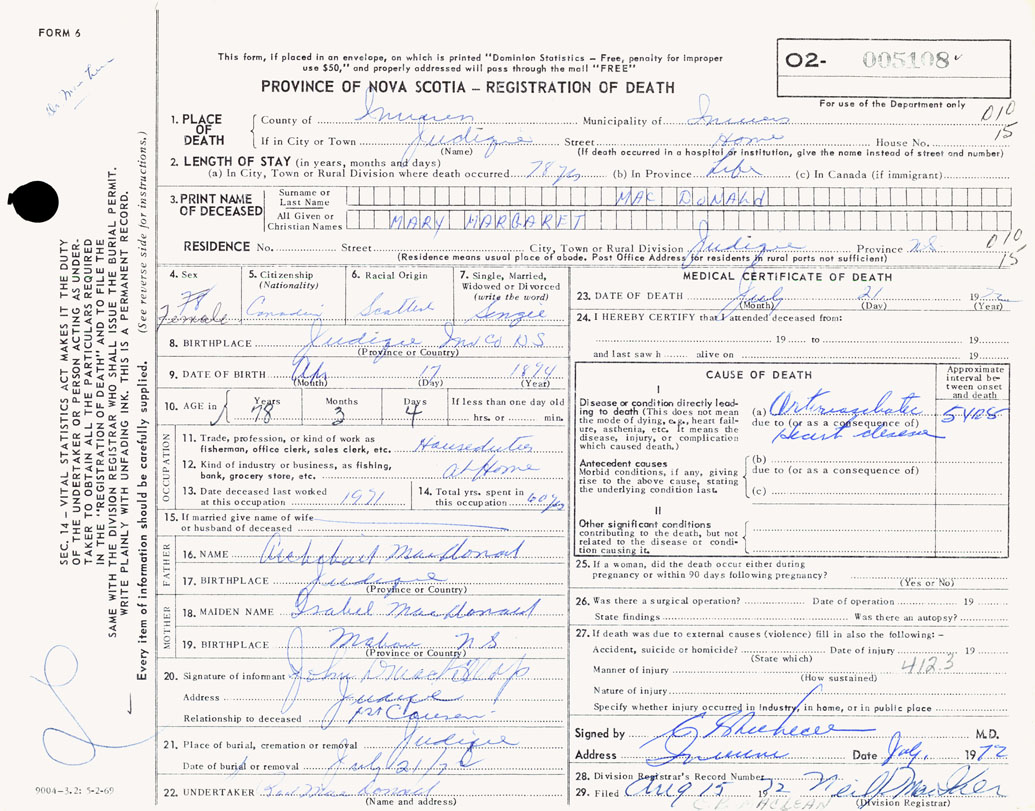 FORM 6
This form, if placed in an envelope, on which is printed "Dominion Statistics - Free, penalty for improper
use $50," and properly addressed will pass through the mail "FREE"
PROVINCE OF NOVA SCOTIA – REGISTRATION OF DEATH
O2- 005108
For use of the Department only
010
15
1. PLACE OF DEATH
County of Municipality of
If in City or Town Judique Street Home House No.
(Name) (If death occurred in a hospital or institution, give the name instead of street and number)
2. LENGTH OF STAY (in years, months and days)
(a) In City, Town or Rural Division where death occurred 78 yrs (b) In Province Life (c) In Canada (if immigrant)
3. PRINT NAME OF DECEASED
Surname or Last Name MAC DONALD
All Given or Christian Names MARY MARGARET
RESIDENCE No. Street City, Town or Rural Division Judique Province N.S.
(Residence means usual place of abode. Post Office Address for residents in rural parts not sufficient)
010
15
4. Sex
Female
5. Citizenship (Nationality)
Canadian
6. Racial Origin
7. Single, Married, Widowed or Divorced (write the word)
Single
8. BIRTHPLACE Judique Inv Co N.S
(Province or Country)
9. DATE OF BIRTH Apr 17 1894
(Month) (Day) (Year)
10. AGE in Years 78 Months 3 Days 4 If less than one day old hrs. or min.
OCCUPATION
11. Trade, profession, or kind of work as fisherman, office clerk, sales clerk, etc. Houseduties
12. Kind of industry or business, as fishing, bank, grocery store, etc. at Home
13. Date deceased last worked at this occupation 1971
14. Total yrs. spent in this occupation 60 yrs
15. If married give name of wife or husband of deceased
FATHER
16. NAME Archibald MacDonald
17. BIRTHPLACE Judique
(Province or Country)
MOTHER
18. MAIDEN NAME Isabel MacDonald
19. BIRTHPLACE Mabou N S
(Province or Country)
20. Signature of informant John
Address Judique
Relationship to deceased 1st
21. Place of burial, cremation or removal Judique
Date of burial or removal July 21/72
22. UNDERTAKER MacDonald
(Name and address)
MEDICAL CERTIFICATE OF DEATH
23. DATE OF DEATH July 21 1972
(Month) (Day) (Year)
24. I HEREBY CERTIFY that I attended deceased from:
19 to 19
and last saw h alive on 19
CAUSE OF DEATH
Approximate interval between onset and death
I
Disease or condition directly leading to death (This does not mean the mode of dying, e.g., heart failure, asthenia, etc. It means the disease, injury, or complication which caused death.)
(a)
due to (or as a consequence of)
Heart disease
5 yrs
Antecedent causes
Morbid conditions, if any, giving rise to the above cause, stating the underlying condition last.
(b)
due to (or as a consequence of)
(c)
II
Other significant conditions
contributing to the death, but not related to the disease or condition causing it.
25. If a woman, did the death occur either during pregnancy or within 90 days following pregnancy?
(Yes or No)
26. Was there a surgical operation? Date of operation 19
State findings Was there an autopsy?
27. If death was due to external causes (violence) fill in also the following: –
Accident, suicide or homicide? Date of injury 19
(State which)
Manner of injury 412.3
(How sustained)
Nature of injury
Specify whether injury occurred in Industry, in home, or in public place
Signed by M.D.
Address Date July, 1972
28. Division Registrar's Record Number
29. Filed Aug 15 1972 Neil
C.P. MACLEAN (Division Registrar)
SEC. 14 – VITAL STATISTICS ACT MAKES IT THE DUTY
OF THE UNDERTAKER OR PERSON ACTING AS UNDER-
TAKER TO OBTAIN ALL THE PARTICULARS REQUIRED
IN THE "REGISTRATION OF DEATH" AND TO FILE THE
SAME WITH THE DIVISION REGISTRAR WHO SHALL ISSUE THE BURIAL PERMIT.
WRITE PLAINLY WITH UNFADING INK. THIS IS A PERMANENT RECORD.
Every item of information should be carefully supplied. (See reverse side for instructions.)
9004-3.2: 5-2-69